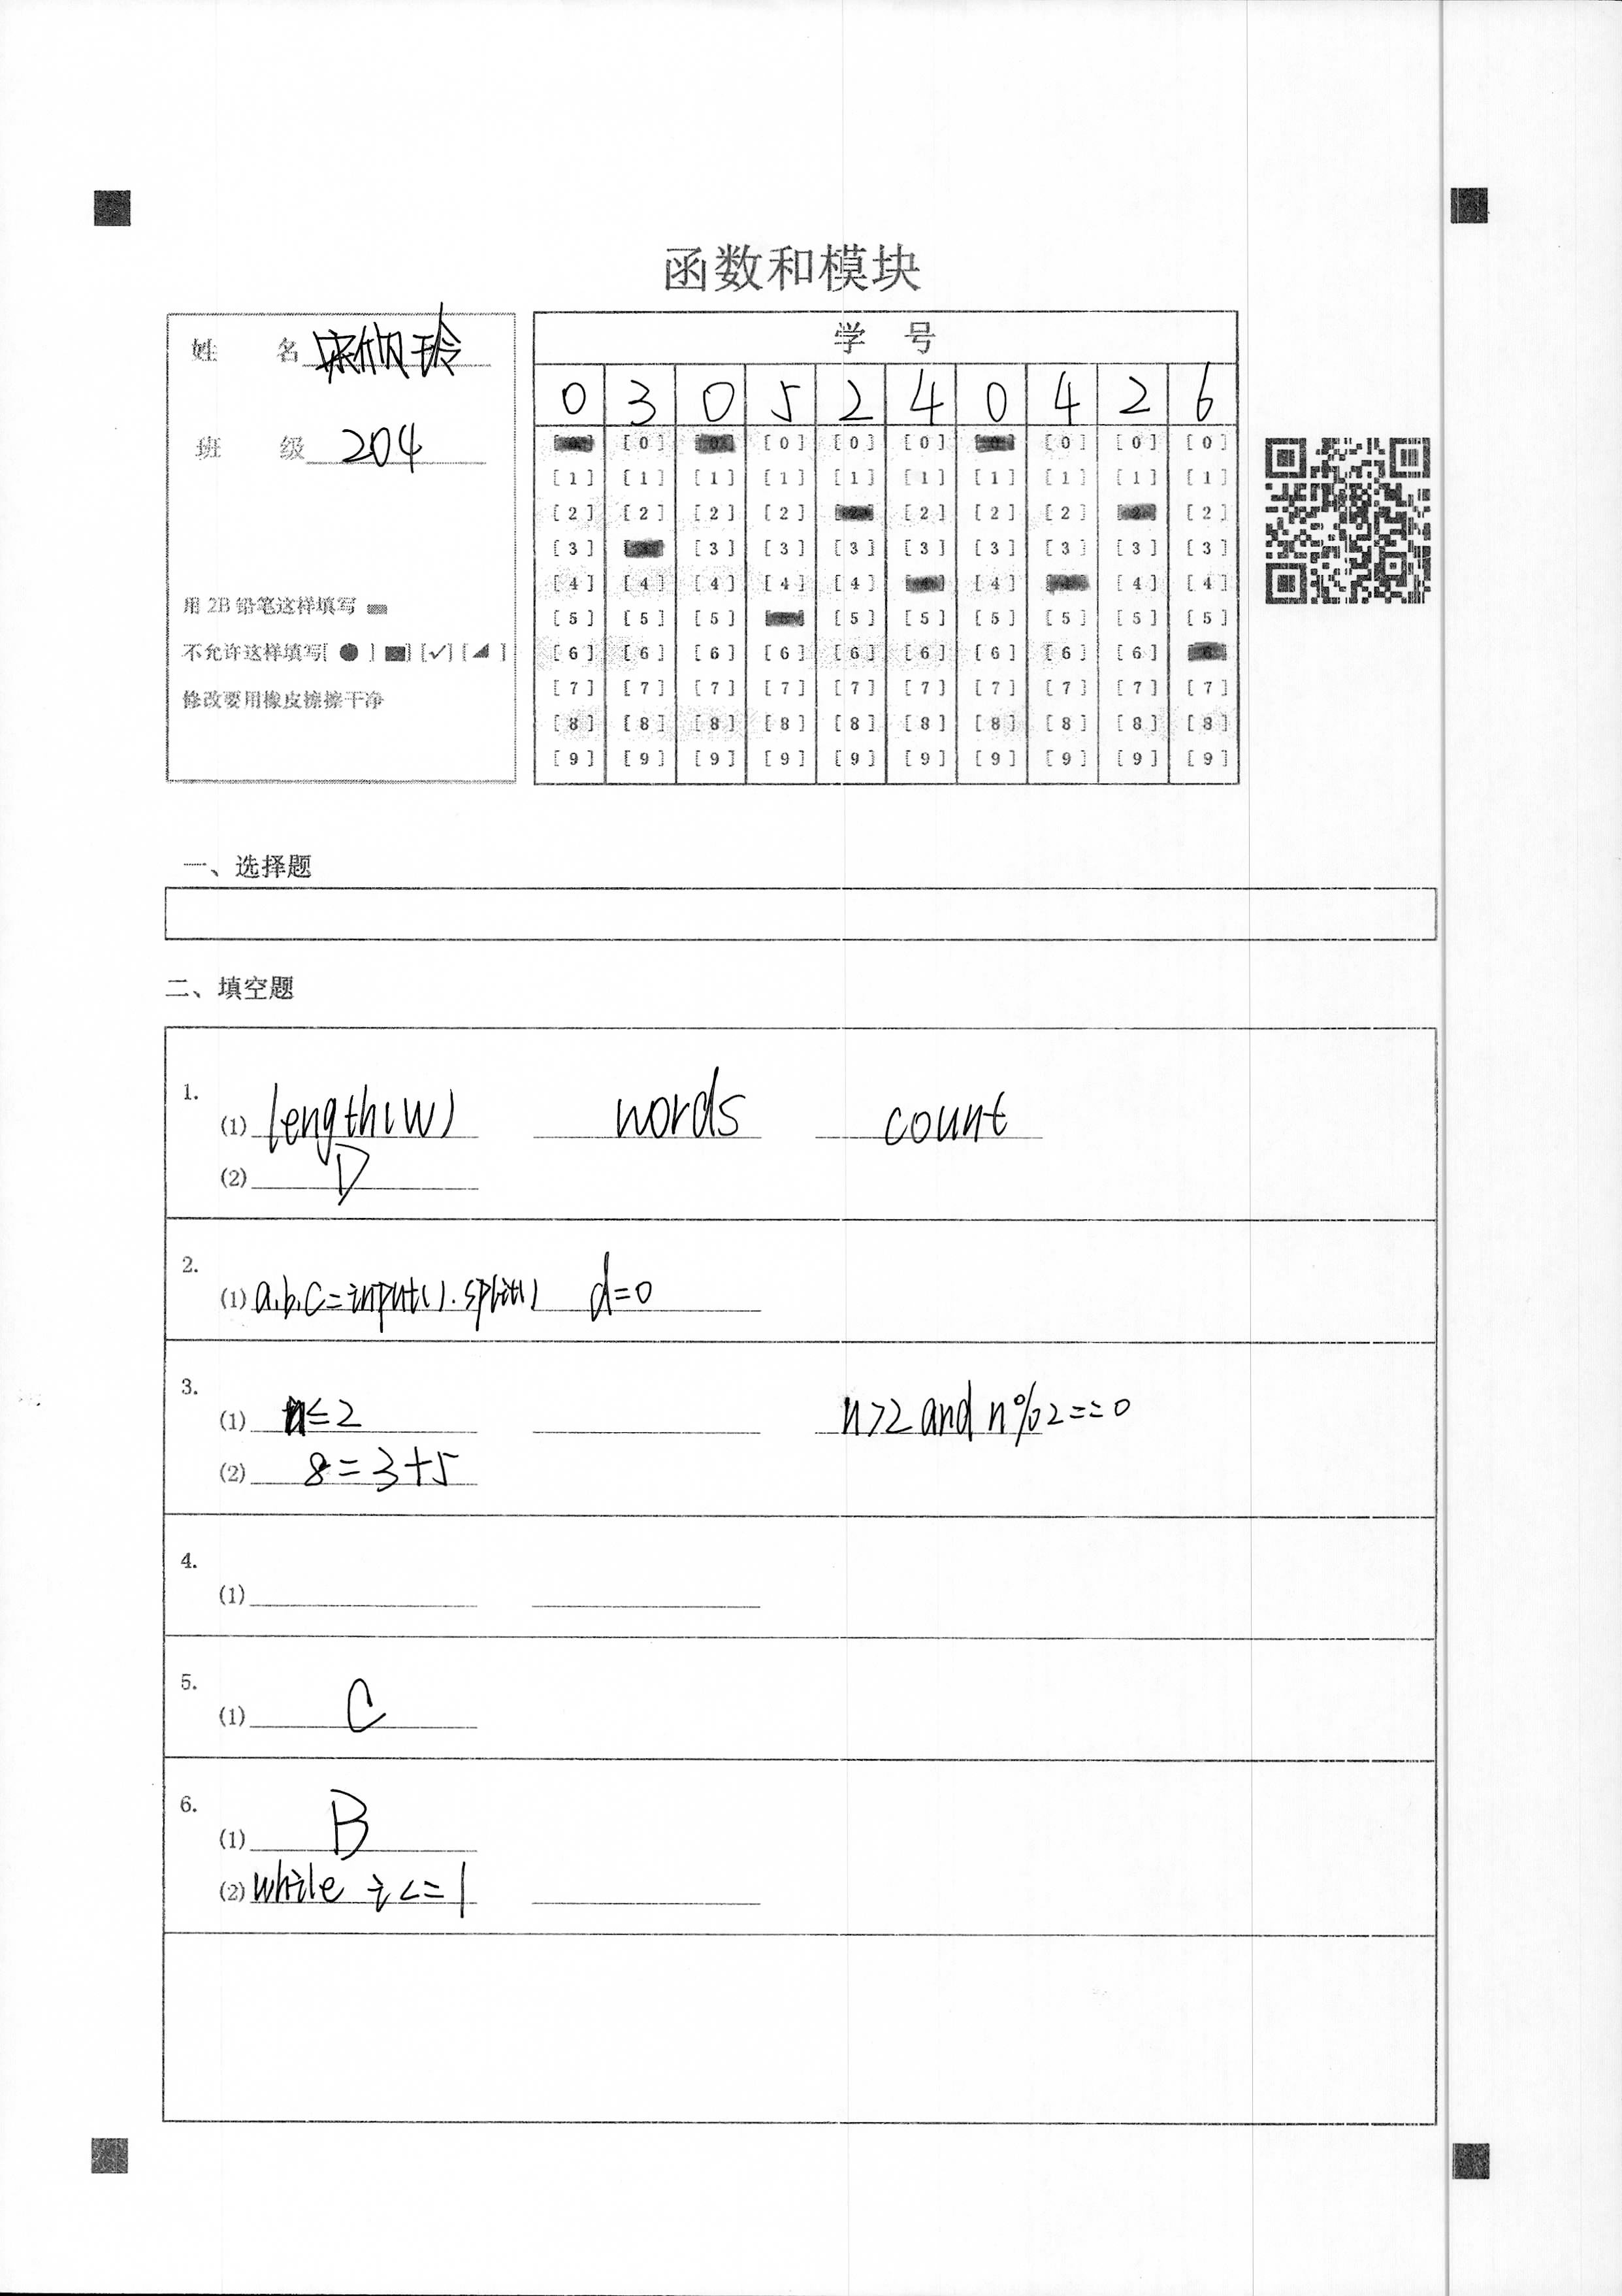 函数和模块
姓 名 宋欣玲
班 级 204
用 2B 铅笔这样填写
不允许这样填写[ ● ] [■] [✓] [◢ ]
修改要用橡皮擦擦干净
学 号
0 3 0 5 2 4 0 4 2 6
[0] [0] [0] [0] [0] [0] [0] [0] [0] [0]
[1] [1] [1] [1] [1] [1] [1] [1] [1] [1]
[2] [2] [2] [2] [2] [2] [2] [2] [2] [2]
[3] [3] [3] [3] [3] [3] [3] [3] [3] [3]
[4] [4] [4] [4] [4] [4] [4] [4] [4] [4]
[5] [5] [5] [5] [5] [5] [5] [5] [5] [5]
[6] [6] [6] [6] [6] [6] [6] [6] [6] [6]
[7] [7] [7] [7] [7] [7] [7] [7] [7] [7]
[8] [8] [8] [8] [8] [8] [8] [8] [8] [8]
[9] [9] [9] [9] [9] [9] [9] [9] [9] [9]
一、选择题
二、填空题
1.
(1) length(w) words count
(2) D
2.
(1) a,b,c=input().split() d=0
3.
(1) n≤2 n>2 and n%2==0
(2) 8=3+5
4.
(1)
5.
(1) C
6.
(1) B
(2) while i<=1